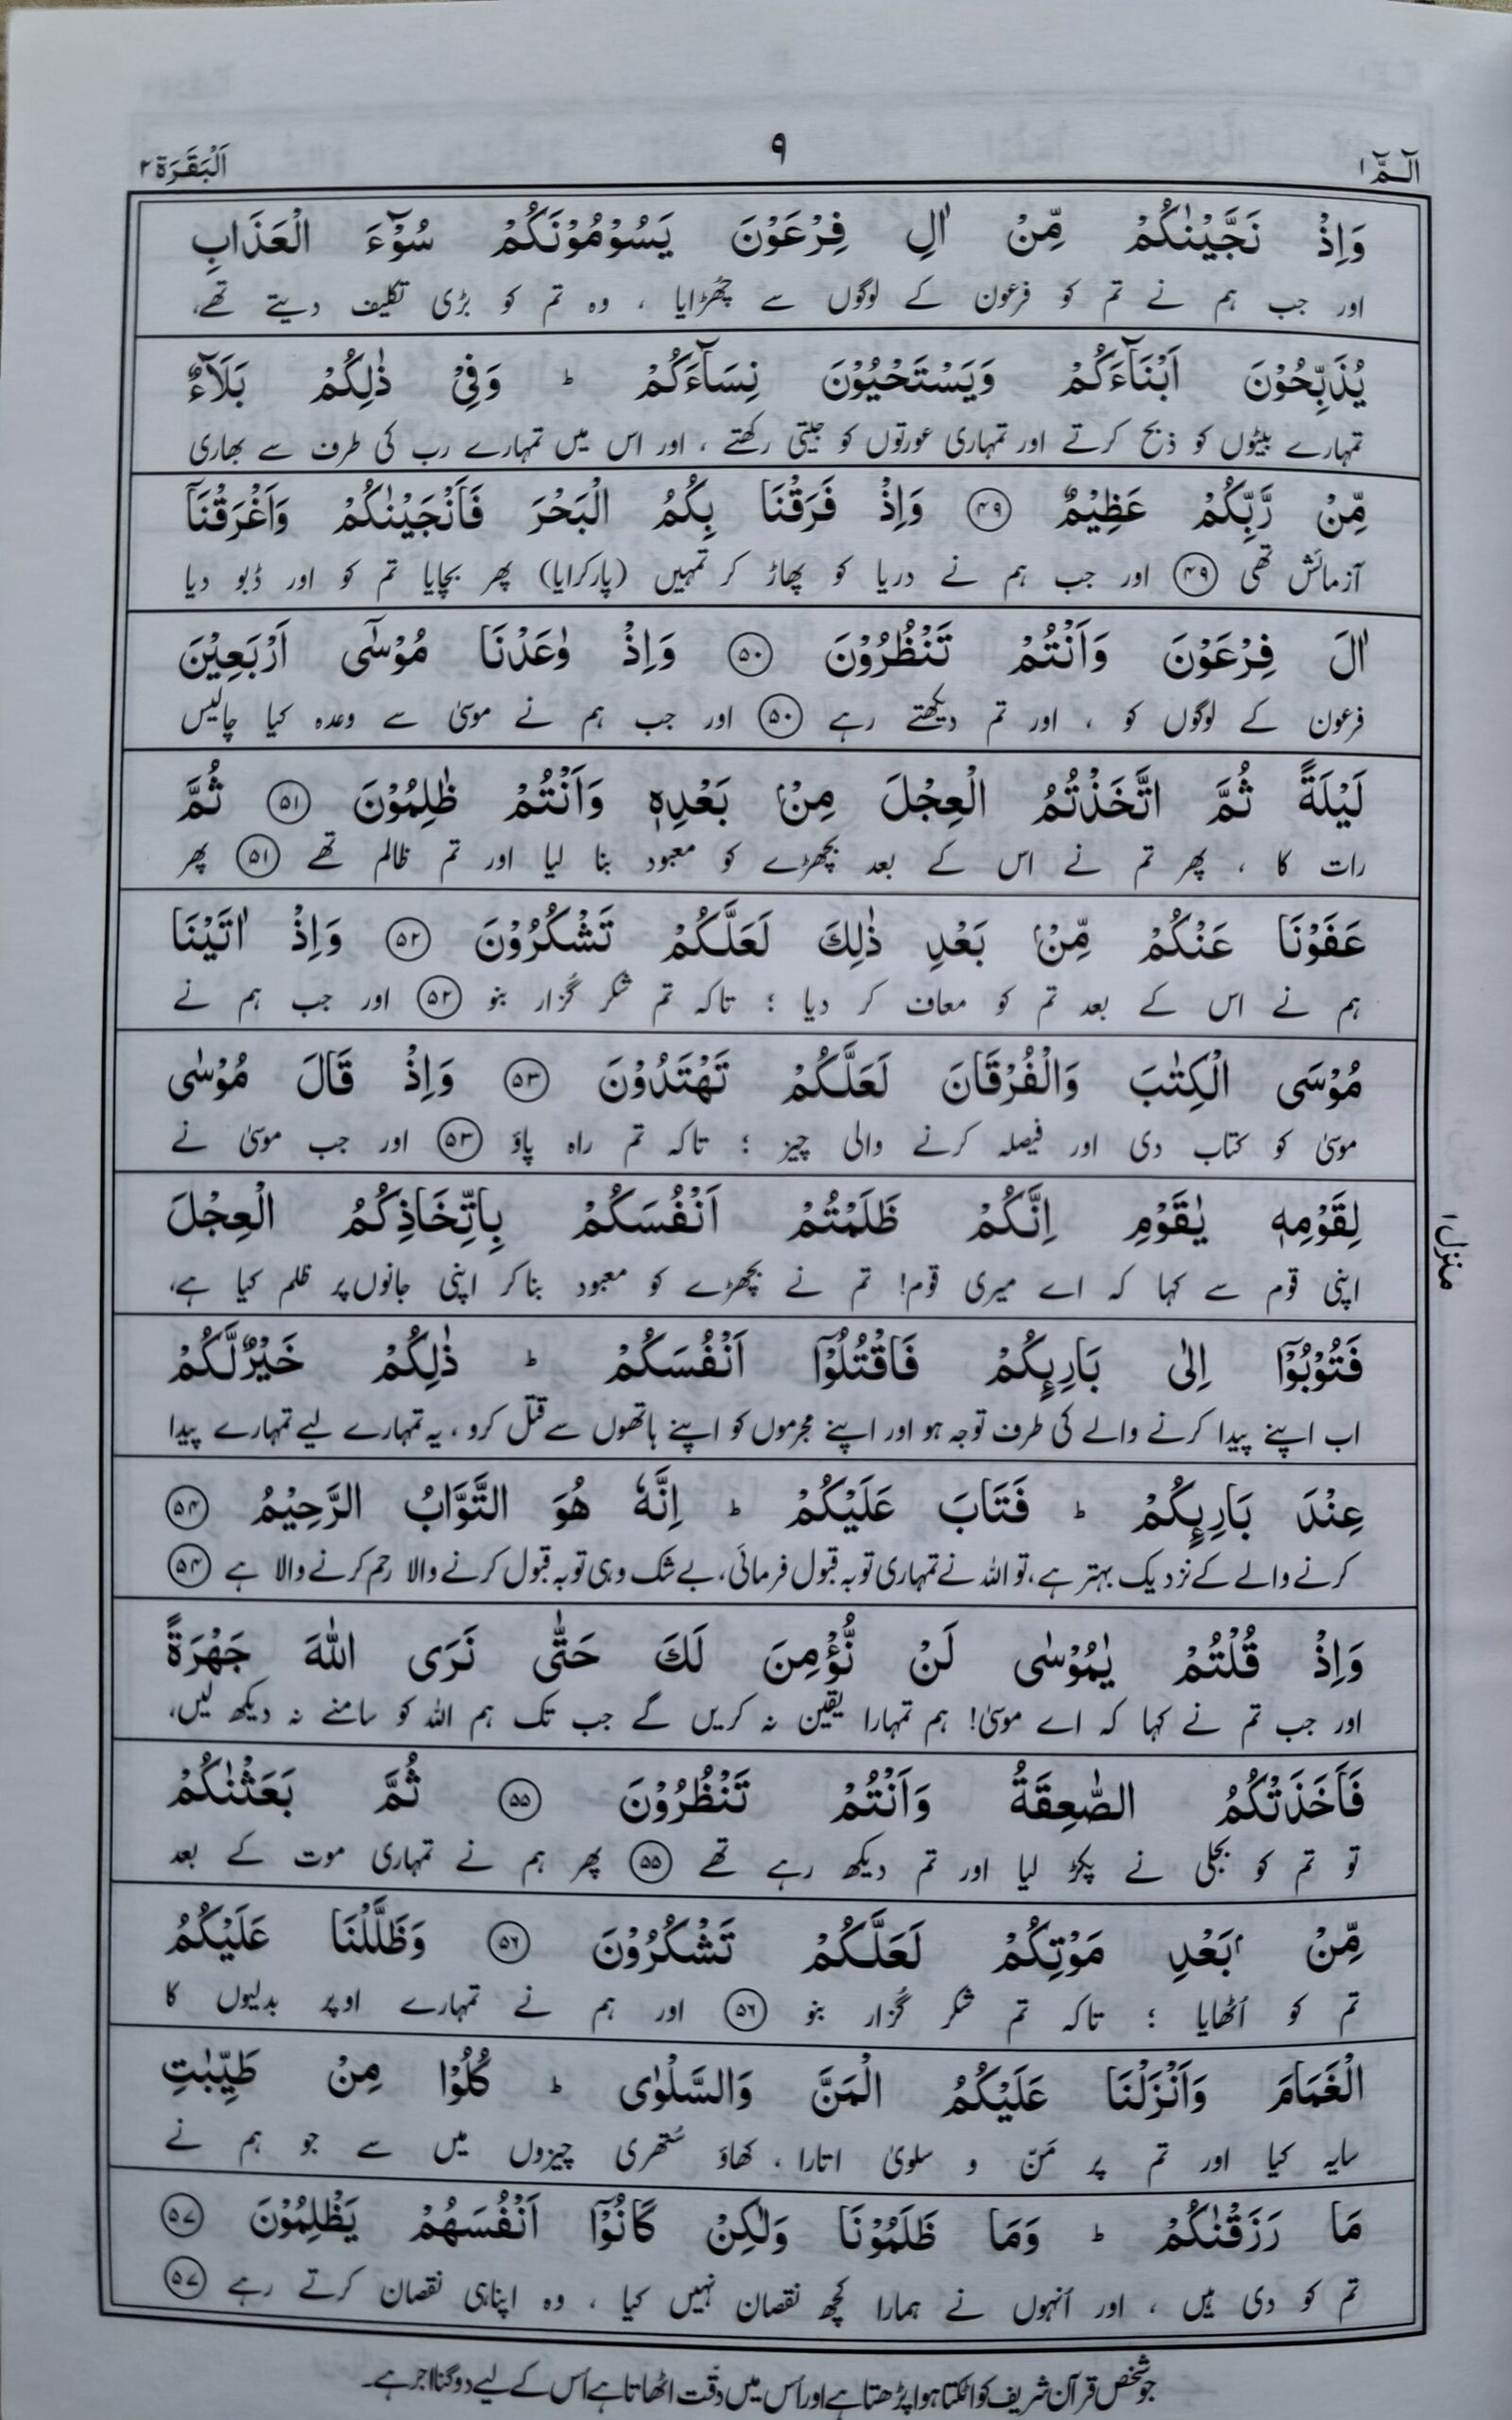 الٓـمّٓ ۱
۹
اَلْبَقَرَة ۲
وَاِذْ نَجَّيْنٰكُمْ مِّنْ اٰلِ فِرْعَوْنَ يَسُوْمُوْنَكُمْ سُوْٓءَ الْعَذَابِ
اور جب ہم نے تم کو فرعون کے لوگوں سے چھڑایا ، وہ تم کو بڑی تکلیف دیتے تھے،
يُذَبِّحُوْنَ اَبْنَآءَكُمْ وَيَسْتَحْيُوْنَ نِسَآءَكُمْ ؕ وَفِيْ ذٰلِكُمْ بَلَآءٌ
تمہارے بیٹوں کو ذبح کرتے اور تمہاری عورتوں کو جیتی رکھتے ، اور اس میں تمہارے رب کی طرف سے بھاری
مِّنْ رَّبِّكُمْ عَظِيْمٌ ۴۹ وَاِذْ فَرَقْنَا بِكُمُ الْبَحْرَ فَاَنْجَيْنٰكُمْ وَاَغْرَقْنَآ
آزمائش تھی ۴۹ اور جب ہم نے دریا کو پھاڑ کر تمہیں (پارکرایا) پھر بچایا تم کو اور ڈبو دیا
اٰلَ فِرْعَوْنَ وَاَنْتُمْ تَنْظُرُوْنَ ۵۰ وَاِذْ وٰعَدْنَا مُوْسٰٓى اَرْبَعِيْنَ
فرعون کے لوگوں کو ، اور تم دیکھتے رہے ۵۰ اور جب ہم نے موسیٰ سے وعدہ کیا چالیس
لَيْلَةً ثُمَّ اتَّخَذْتُمُ الْعِجْلَ مِنْۢ بَعْدِهٖ وَاَنْتُمْ ظٰلِمُوْنَ ۵۱ ثُمَّ
رات کا ، پھر تم نے اس کے بعد بچھڑے کو معبود بنا لیا اور تم ظالم تھے ۵۱ پھر
عَفَوْنَا عَنْكُمْ مِّنْۢ بَعْدِ ذٰلِكَ لَعَلَّكُمْ تَشْكُرُوْنَ ۵۲ وَاِذْ اٰتَيْنَا
ہم نے اس کے بعد تم کو معاف کر دیا ؛ تاکہ تم شکر گزار بنو ۵۲ اور جب ہم نے
مُوْسَى الْكِتٰبَ وَالْفُرْقَانَ لَعَلَّكُمْ تَهْتَدُوْنَ ۵۳ وَاِذْ قَالَ مُوْسٰى
موسیٰ کو کتاب دی اور فیصلہ کرنے والی چیز ؛ تاکہ تم راہ پاؤ ۵۳ اور جب موسیٰ نے
لِقَوْمِهٖ يٰقَوْمِ اِنَّكُمْ ظَلَمْتُمْ اَنْفُسَكُمْ بِاتِّخَاذِكُمُ الْعِجْلَ
اپنی قوم سے کہا کہ اے میری قوم! تم نے بچھڑے کو معبود بناکر اپنی جانوں پر ظلم کیا ہے،
منزل ۱
فَتُوْبُوْٓا اِلٰى بَارِىِٕكُمْ فَاقْتُلُوْٓا اَنْفُسَكُمْ ؕ ذٰلِكُمْ خَيْرٌلَّكُمْ
اب اپنے پیدا کرنے والے کی طرف توجہ ہو اور اپنے مجرموں کو اپنے ہاتھوں سے قتل کرو ، یہ تمہارے لیے تمہارے پیدا
عِنْدَ بَارِىِٕكُمْ ؕ فَتَابَ عَلَيْكُمْ ؕ اِنَّهٗ هُوَ التَّوَّابُ الرَّحِيْمُ ۵۴
کرنے والے کے نزدیک بہتر ہے، تو اللہ نے تمہاری توبہ قبول فرمائی، بے شک وہی توبہ قبول کرنے والا رحم کرنے والا ہے ۵۴
وَاِذْ قُلْتُمْ يٰمُوْسٰى لَنْ نُّؤْمِنَ لَكَ حَتّٰى نَرَى اللّٰهَ جَهْرَةً
اور جب تم نے کہا کہ اے موسیٰ! ہم تمہارا یقین نہ کریں گے جب تک ہم اللہ کو سامنے نہ دیکھ لیں،
فَاَخَذَتْكُمُ الصّٰعِقَةُ وَاَنْتُمْ تَنْظُرُوْنَ ۵۵ ثُمَّ بَعَثْنٰكُمْ
تو تم کو بجلی نے پکڑ لیا اور تم دیکھ رہے تھے ۵۵ پھر ہم نے تمہاری موت کے بعد
مِّنْۢ بَعْدِ مَوْتِكُمْ لَعَلَّكُمْ تَشْكُرُوْنَ ۵۶ وَظَلَّلْنَا عَلَيْكُمُ
تم کو اُٹھایا ؛ تاکہ تم شکر گزار بنو ۵۶ اور ہم نے تمہارے اوپر بدلیوں کا
الْغَمَامَ وَاَنْزَلْنَا عَلَيْكُمُ الْمَنَّ وَالسَّلْوٰى ؕ كُلُوْا مِنْ طَيِّبٰتِ
سایہ کیا اور تم پر مَنّ و سلویٰ اتارا ، کھاؤ سُتھری چیزوں میں سے جو ہم نے
مَا رَزَقْنٰكُمْ ؕ وَمَا ظَلَمُوْنَا وَلٰكِنْ كَانُوْٓا اَنْفُسَهُمْ يَظْلِمُوْنَ ۵۷
تم کو دی ہیں ، اور اُنہوں نے ہمارا کچھ نقصان نہیں کیا ، وہ اپناہی نقصان کرتے رہے ۵۷
جو شخص قرآن شریف کو اٹکتا ہوا پڑھتا ہے اور اُس میں دقّت اٹھاتا ہے اُس کے لیے دوگنا اجر ہے۔